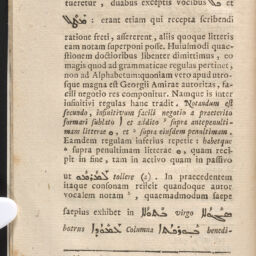 tueretur , duabus exceptis vocibus
: erant etiam qui recepta scribendi
ratione freti , assererent , aliis quoque litteris
eam notam superponi posse. Huiusmodi quae-
stionem doctioribus libenter dimittimus , eo
magis quod ad grammaticae regulas pertinet ,
non ad Alphabetum quoniam vero apud utros-
que magna est Georgii Amirae autoritas , fa-
cili negotio res componitur. Namque is inter
infinitivi regulas hanc tradit . Notandum est
secundo , infinitivum facili negotio a praeteritis
formari sublato et addito supra antepenulti-
mam litterae , et supra eiusdem penultimam .
Eamdem regulam inferius repetit : habetque
supra penultimam litterae , quam reci-
pit in fine , tam in activo quam in passivo
ut ܠܡܪܡܘ tollere (2) . In praecedentem
itaque consonam reiicit quandoque autor
vocalem notam , quaemadmodum saepe
saepius exhibet in virgo
botrus columna benedi-